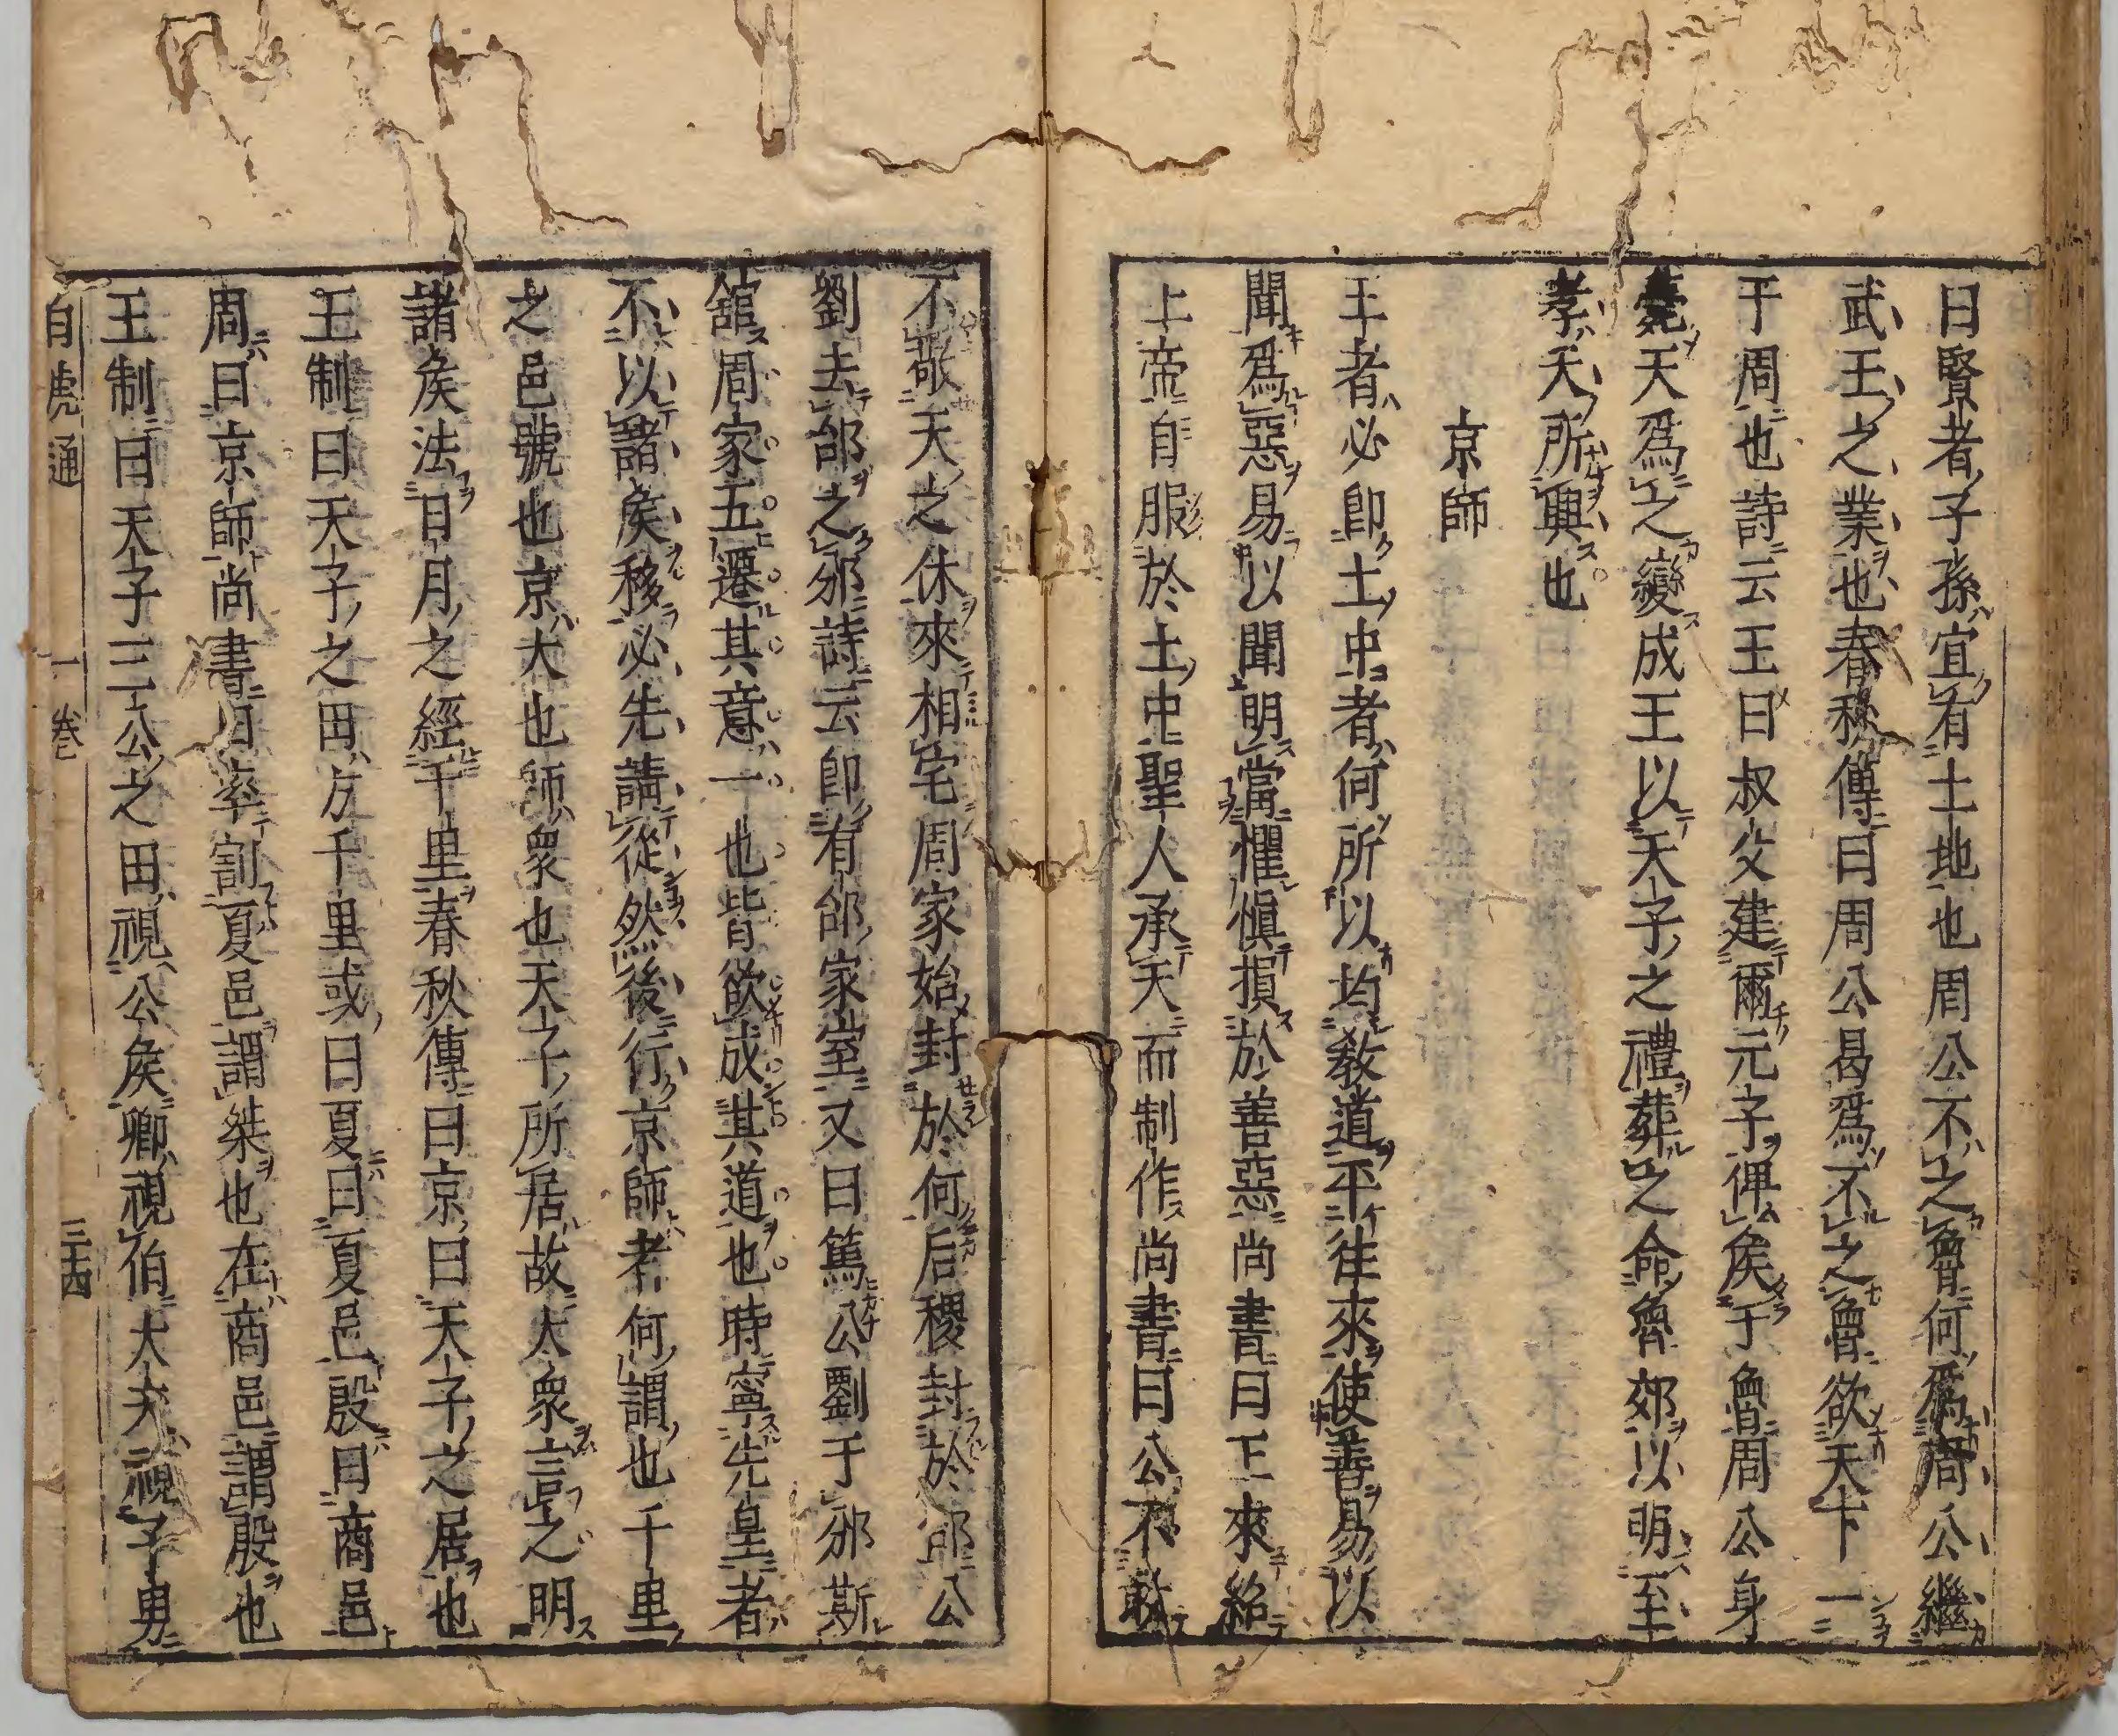 曰賢者子孫宜有土地也周公不之魯何爲周公繼
武王之業也春秋傳曰周公曷爲不之魯欲天下一
于周也詩云王曰叔父建爾元子俾侯于魯周公身
薨天爲之變成王以天子之禮葬之命魯郊以明至
孝天所興也
京師
王者必卽土中者何所以均教道平往來使善易以
聞爲惡易以聞明當懼愼損於善惡尚書曰王來紹
上帝自服於土中聖人承天而制作尚書曰公不敢
不敬天之休來相宅周家始封於何后稷封於邰公
劉去邰之邠詩云卽有邰家室又曰篤公劉于邠斯
舘周家五遷其意一也皆欲成其道也時寧先皇者
不以諸侯移必先請從然後行京師者何謂也千里
之邑號也京大也師衆也天子所居故大衆言之明
諸侯法日月之經千里春秋傳曰京曰天子之居也
王制曰天子之田方千里或曰夏曰夏邑殷曰商邑
周曰京師尚書曰率割夏邑謂桀也在商邑謂殷也
王制曰天子三公之田視公侯卿視伯大夫視子男
白虎通 一卷 三十四